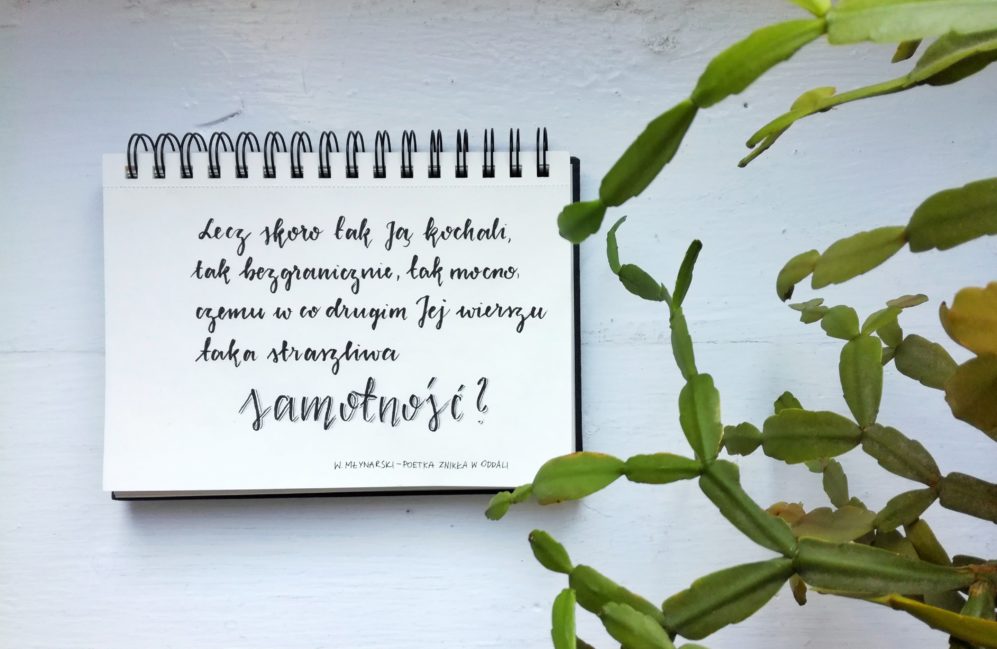 Lecz skoro tak Ją kochali,
tak bezgranicznie, tak mocno,
czemu w co drugim Jej wierszu
taka straszliwa
samotność?
W. MŁYNARSKI - POETKA ZNIKŁA W ODDALI